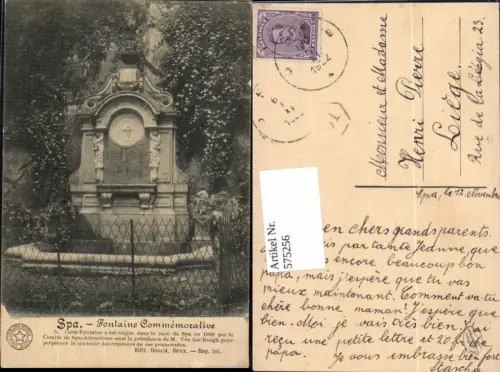 Spa. – Fontaine Commémorative
5. Cette Fontaine a été érigée dans le parc de Spa en 1909 par le
Comité de Spa-Attractions sous la présidence de M. Van der Burgh pour
perpétuer le souvenir des créateurs de ses promenades.
Edit. Desaix, Brux. — Rep. int.
Artikel Nr.
575256
Monsieur et Madame
Henri Pierre
Liège.
Rue de la Légia 23.
Spa, le 12 Novembre
bien chers grands parents.
par tante Jeanne, que
encore beaucoup bon
papa, mais j'espère que tu vas
mieux maintenant. Comment va-tu
chère bonne maman? J'espère que
bien. Moi je vais très bien. J'ai
reçu une petite lettre et 20 fr. de
papa. Je vous embrasse bien fort